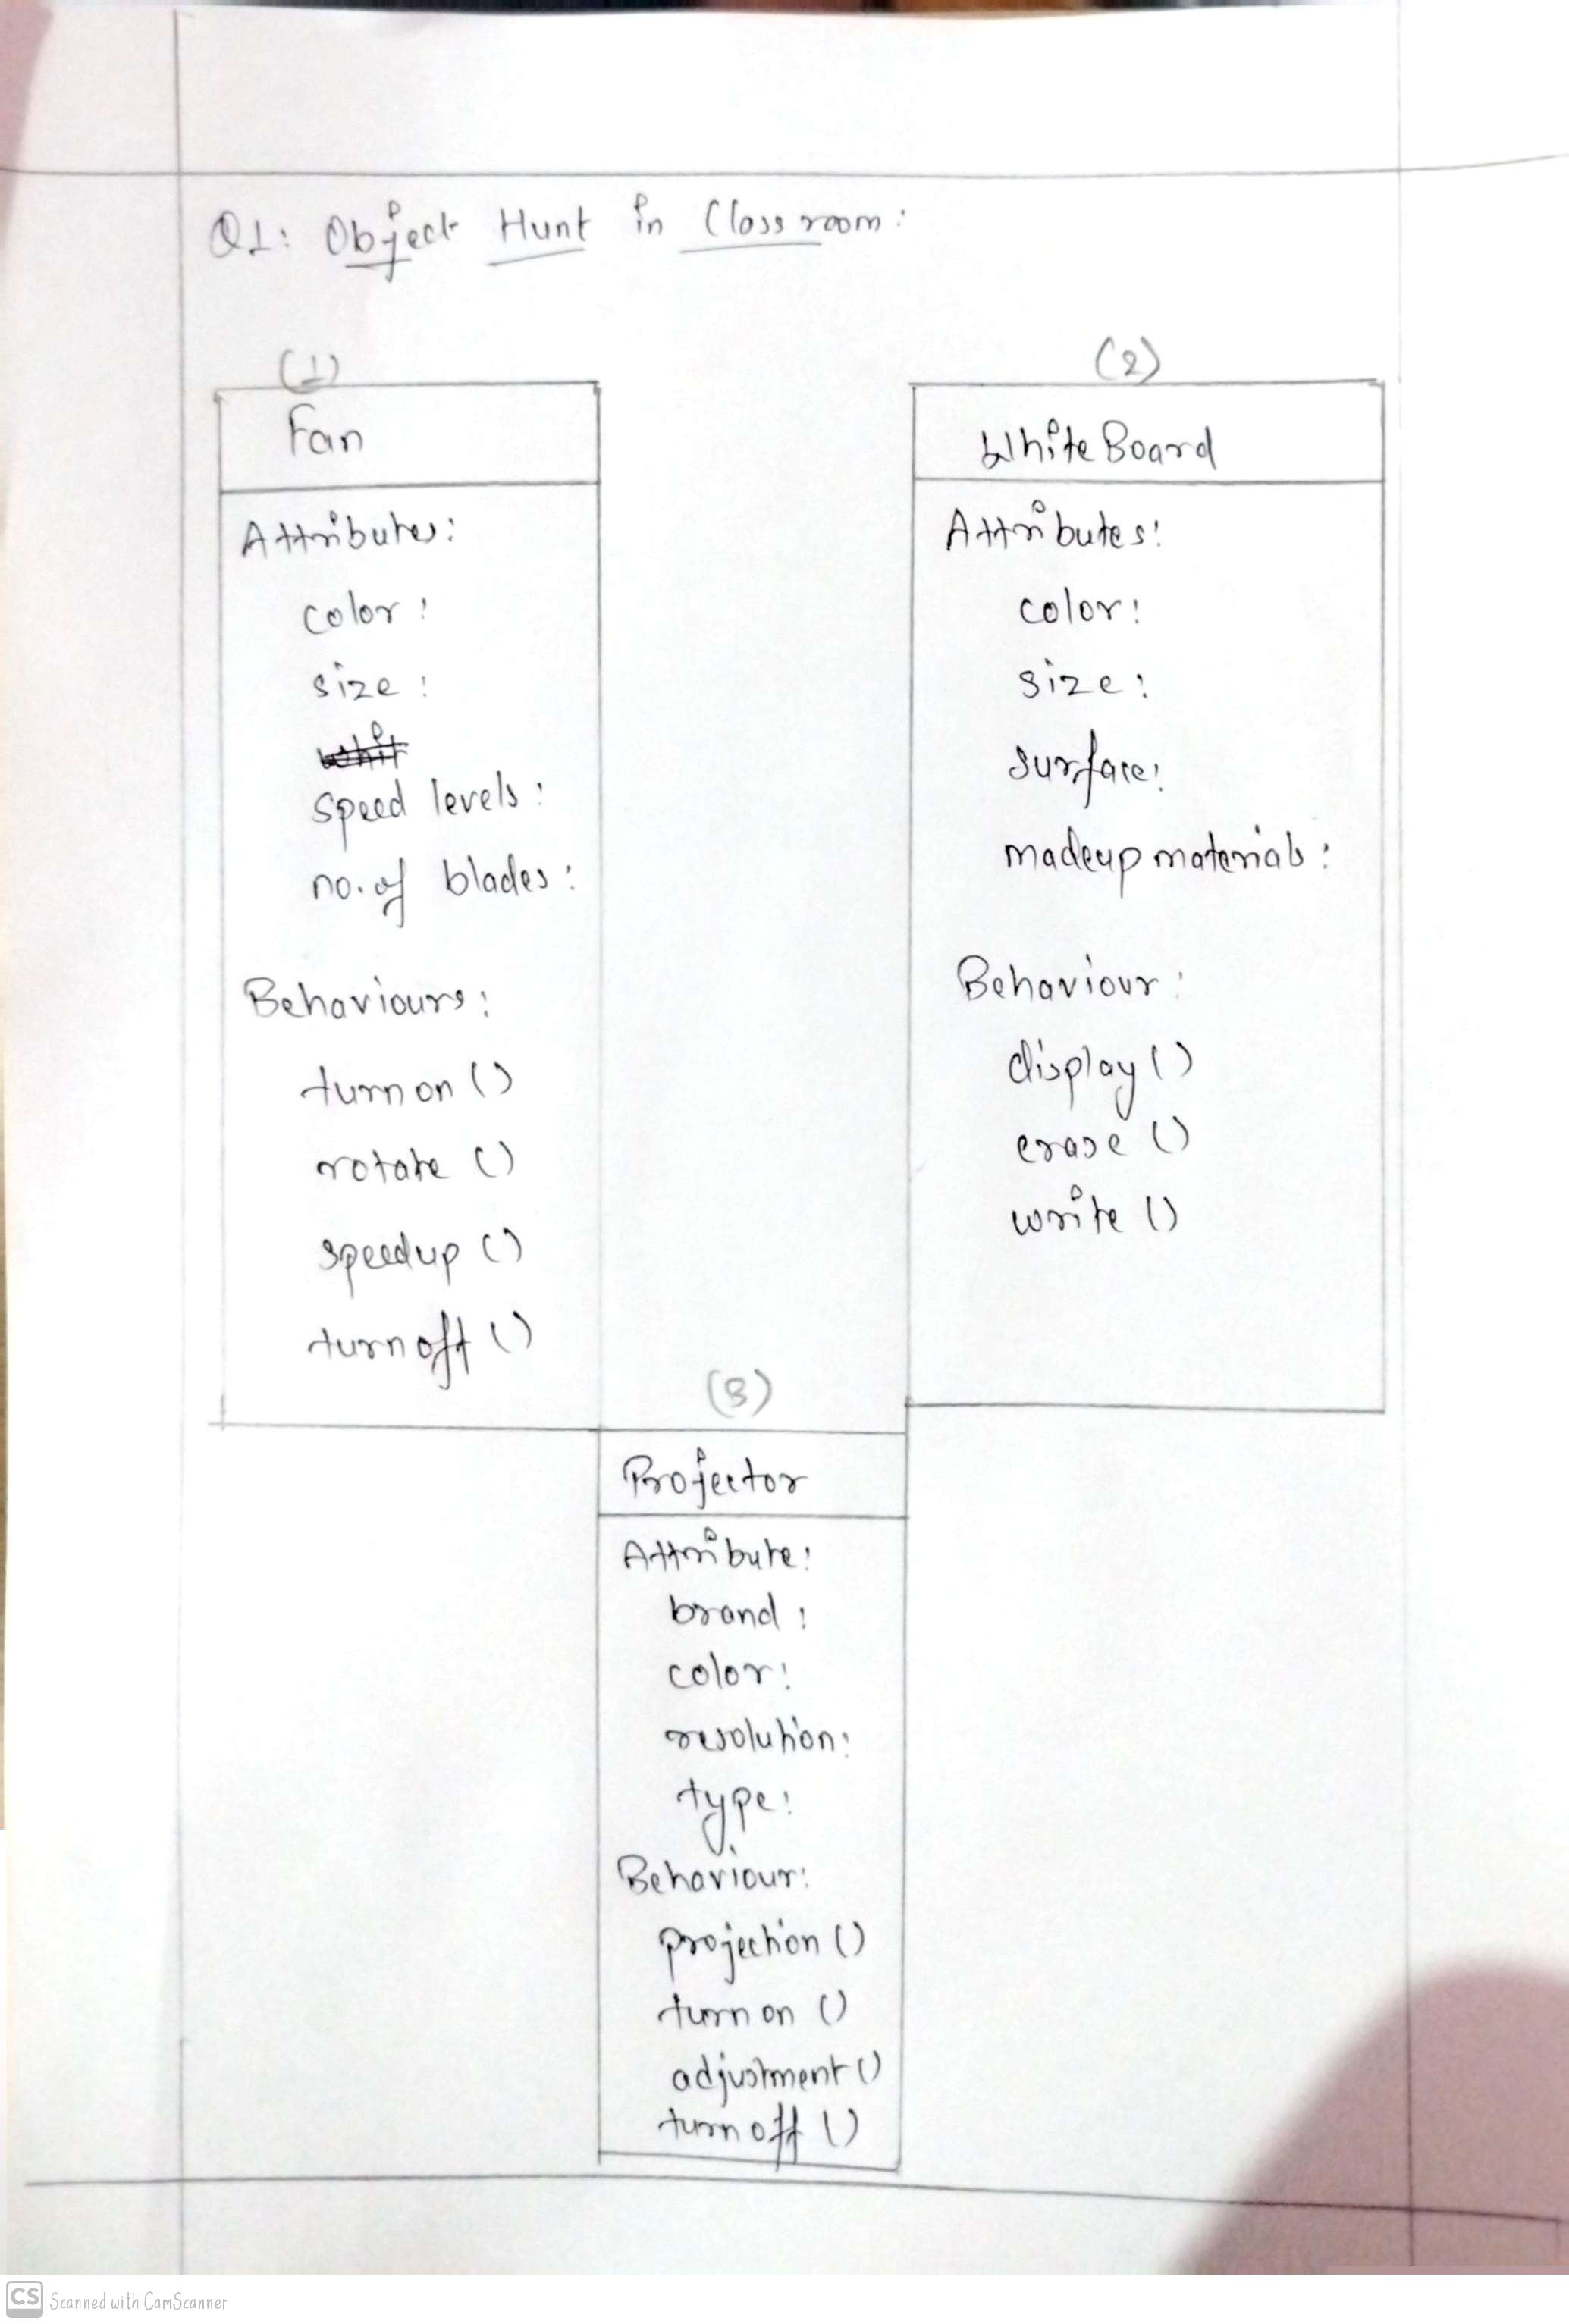 Q1: Object Hunt in Classroom:
(1)
Fan
Attributes:
color:
size:
speed levels:
no. of blades:
Behaviours:
turn on ()
rotate ()
speedup ()
turn off ()
(2)
White Board
Attributes:
color:
size:
surface:
madeup materials:
Behaviour:
display ()
erase ()
write ()
(3)
Projector
Attribute:
brand:
color:
resolution:
type:
Behaviour:
projection ()
turn on ()
adjustment ()
turn off ()
CS Scanned with CamScanner